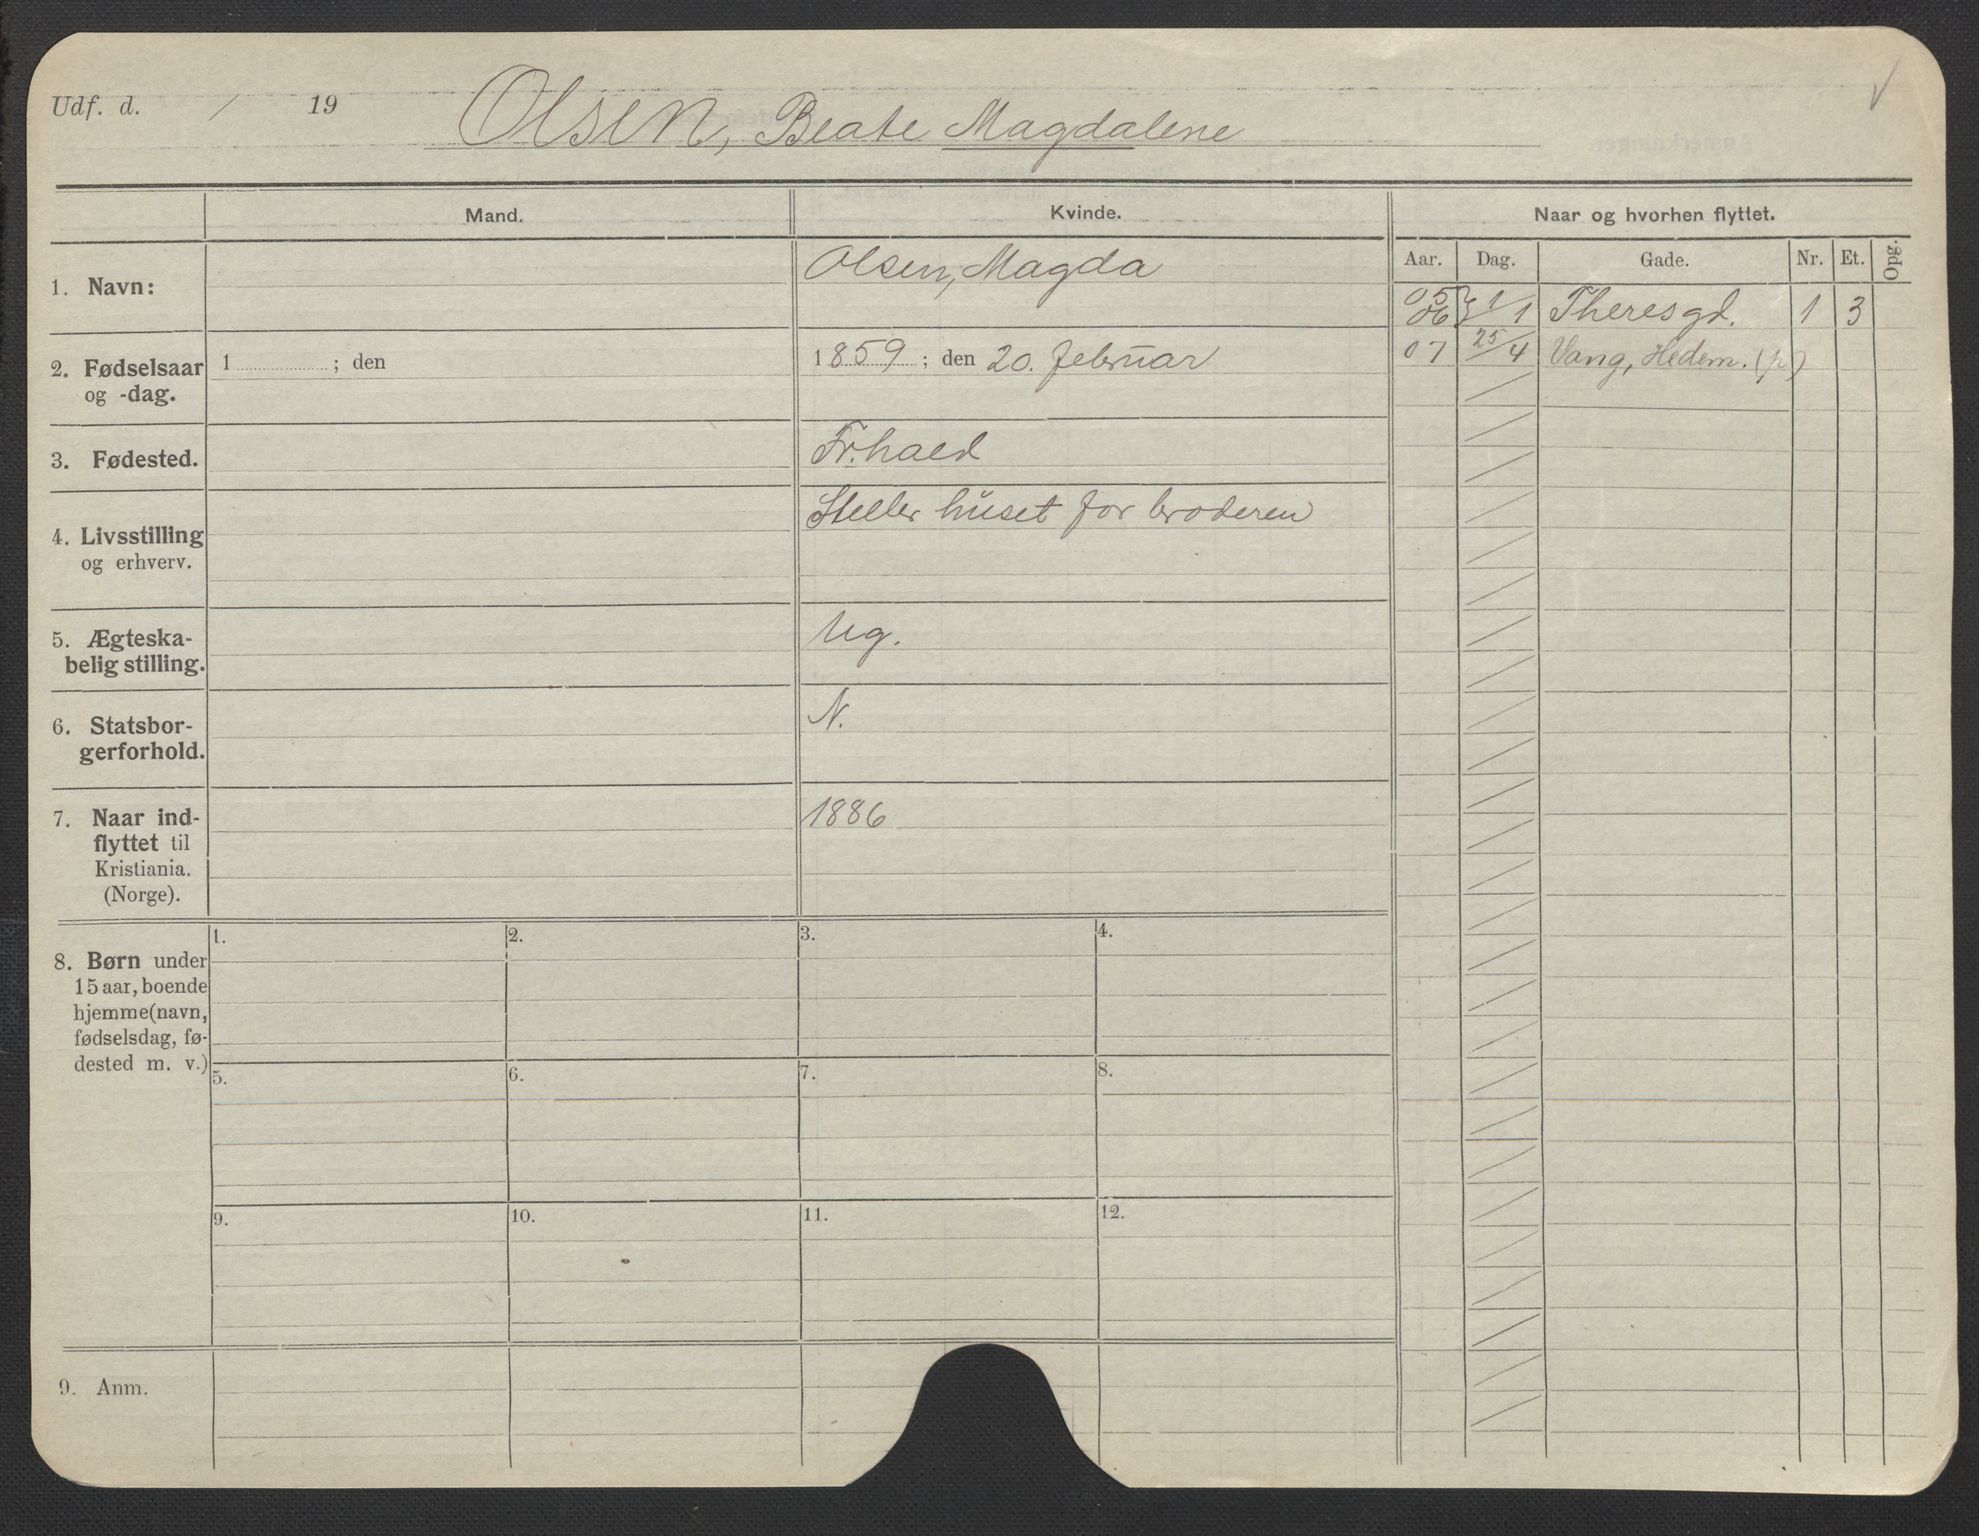 Udf. d. / 19 Olsen, Beate Magdalene
Mand. Kvinde. Naar og hvorhen flyttet.
Aar. Dag. Gade. Nr. Et. Opg.
1. Navn: Olsen, Magda
05
06 } 1/1 Theresgd. 1 3
07 25/4 Vang, Hedem. (p)
2. Fødselsaar
og -dag.
1 ; den 1859 ; den 20. februar
3. Fødested. Fr.hald
4. Livsstilling
og erhverv.
Steller huset for broderen
5. Ægteska-
belig stilling.
Ug.
6. Statsbor-
gerforhold.
N.
7. Naar ind-
flyttet til
Kristiania.
(Norge).
1886
8. Børn under
15 aar, boende
hjemme (navn,
fødselsdag, fø-
dested m. v.)
1. 2. 3. 4.
5. 6. 7. 8.
9. 10. 11. 12.
9. Anm.